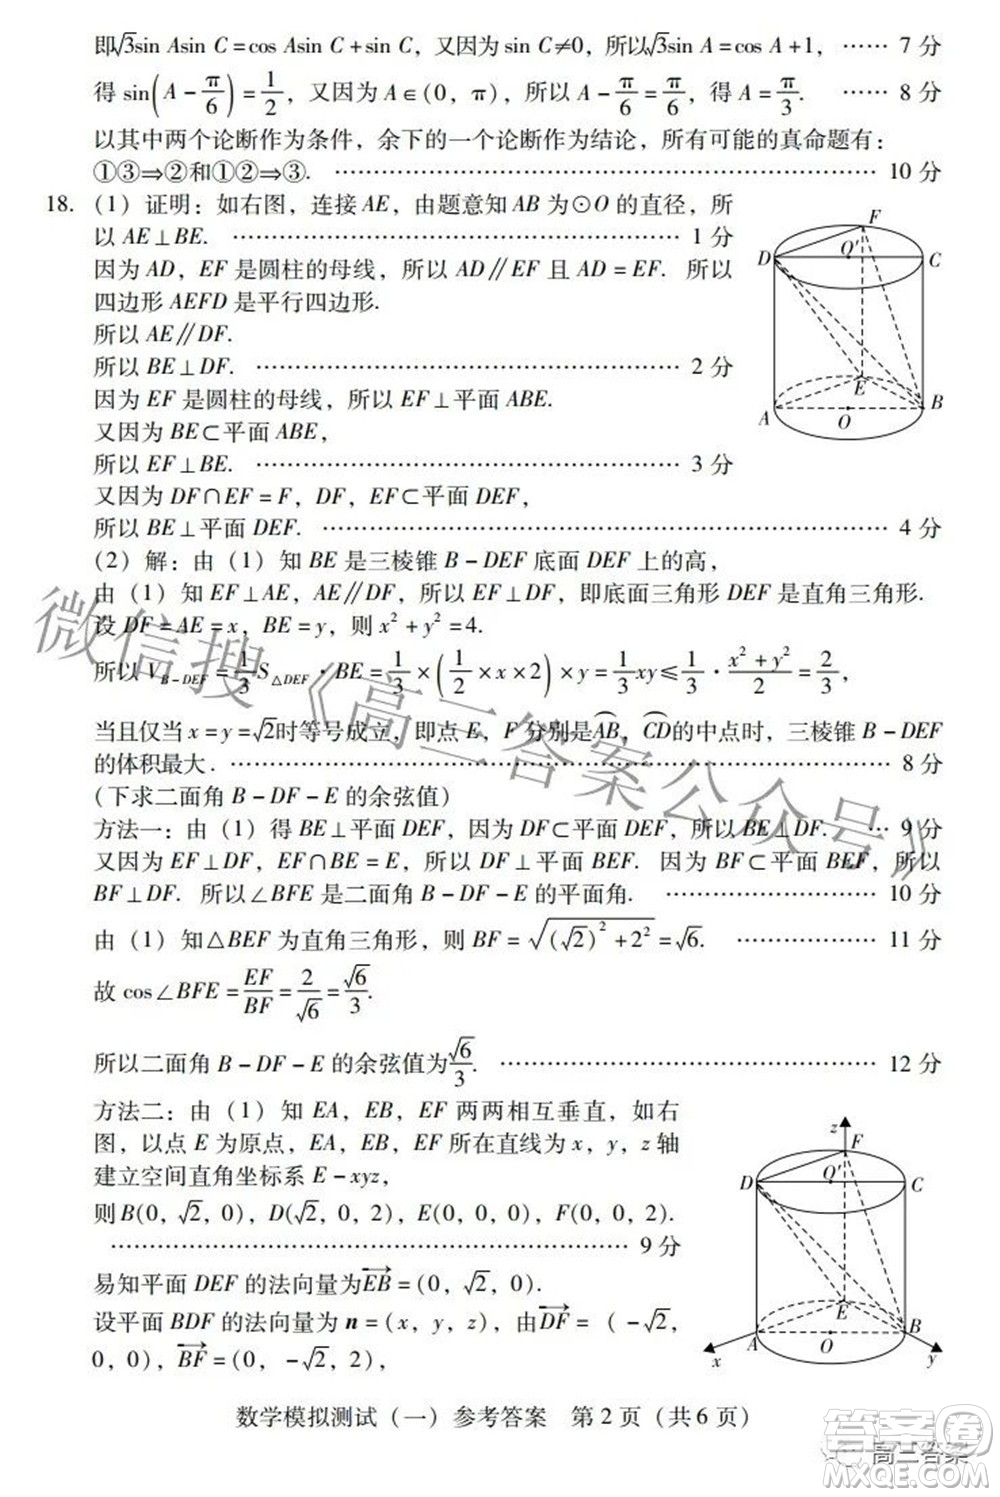 即√3sin Asin C=cos Asin C+sin C，又因为 sin C≠0，所以√3sin A=cos A+1， …… 7 分
得 sin(A−π/6)=1/2，又因为 A∈(0，π)，所以 A−π/6=π/6，得 A=π/3. …… 8 分
以其中两个论断作为条件，余下的一个论断作为结论，所有可能的真命题有：
①③⇒②和①②⇒③. …… 10 分
18. (1) 证明：如右图，连接 AE，由题意知 AB 为⊙O 的直径，所
以 AE⊥BE. …… 1 分
因为 AD，EF 是圆柱的母线，所以 AD∥EF 且 AD=EF. 所以
四边形 AEFD 是平行四边形.
所以 AE∥DF.
所以 BE⊥DF. …… 2 分
因为 EF 是圆柱的母线，所以 EF⊥平面 ABE.
又因为 BE⊂平面 ABE，
所以 EF⊥BE. …… 3 分
又因为 DF∩EF=F，DF，EF⊂平面 DEF，
所以 BE⊥平面 DEF. …… 4 分
F
D
O′
C
E
A
O
B
(2) 解：由（1）知 BE 是三棱锥 B−DEF 底面 DEF 上的高，
由（1）知 EF⊥AE，AE∥DF，所以 EF⊥DF，即底面三角形 DEF 是直角三角形.
设 DF=AE=x，BE=y，则 x²+y²=4.
所以 V_{B−DEF}=1/3 S_{△DEF}·BE=1/3×(1/2×x×2)×y=1/3xy≤1/3·(x²+y²)/2=2/3，
当且仅当 x=y=√2时等号成立，即点 E，F 分别是⌒AB，⌒CD的中点时，三棱锥 B−DEF
的体积最大. …… 8 分
（下求二面角 B−DF−E 的余弦值）
方法一：由（1）得 BE⊥平面 DEF，因为 DF⊂平面 DEF，所以 BE⊥DF. … 9 分
又因为 EF⊥DF，EF∩BE=E，所以 DF⊥平面 BEF. 因为 BF⊂平面 BEF，所以
BF⊥DF. 所以∠BFE 是二面角 B−DF−E 的平面角. …… 10 分
由（1）知△BEF 为直角三角形，则 BF=√((√2)²+2²)=√6. …… 11 分
故 cos∠BFE=EF/BF=2/√6=√6/3.
所以二面角 B−DF−E 的余弦值为√6/3. …… 12 分
方法二：由（1）知 EA，EB，EF 两两相互垂直，如右
图，以点 E 为原点，EA，EB，EF 所在直线为 x，y，z 轴
建立空间直角坐标系 E−xyz，
则 B(0，√2，0)，D(√2，0，2)，E(0，0，0)，F(0，0，2).
…… 9 分
易知平面 DEF 的法向量为→EB=(0，√2，0).
设平面 BDF 的法向量为 n=(x，y，z)，由→DF=(−√2，
0，0)，→BF=(0，−√2，2)，
z
F
D
O′
C
E
A
O
B
x
y
数学模拟测试（一）参考答案 第 2 页（共 6 页）
微信搜《高三答案公众号》
高三答案
答案圈
MXQE.COM